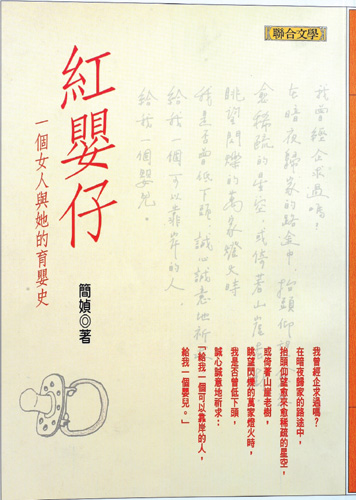 聯合文學
我曾經企求過嗎?
在暗夜歸家的路途中,抬頭仰望
愈稀疏的星空,或倚著山崖老
眺望閃爍的萬家燈火時
我是否曾低下頭,誠心誠意地祈
給我一個可以靠岸的人
給我一個嬰兒。
紅嬰仔
一個女人與她的育嬰史
簡媜◎著
我曾經企求過嗎?
在暗夜歸家的路途中,
抬頭仰望愈來愈稀疏的星空,
或倚著山崖老樹,
眺望閃爍的萬家燈火時,
我是否曾低下頭,
誠心誠意地祈求:
「給我一個可以靠岸的人,
給我一個嬰兒。」